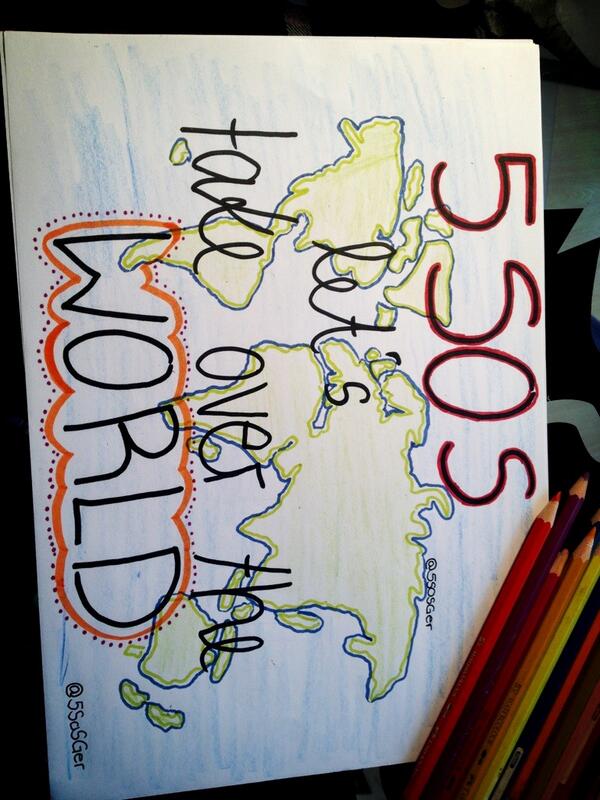 5SOS
@5SOSGer
let's
take over the
WORLD
@5SoSGer